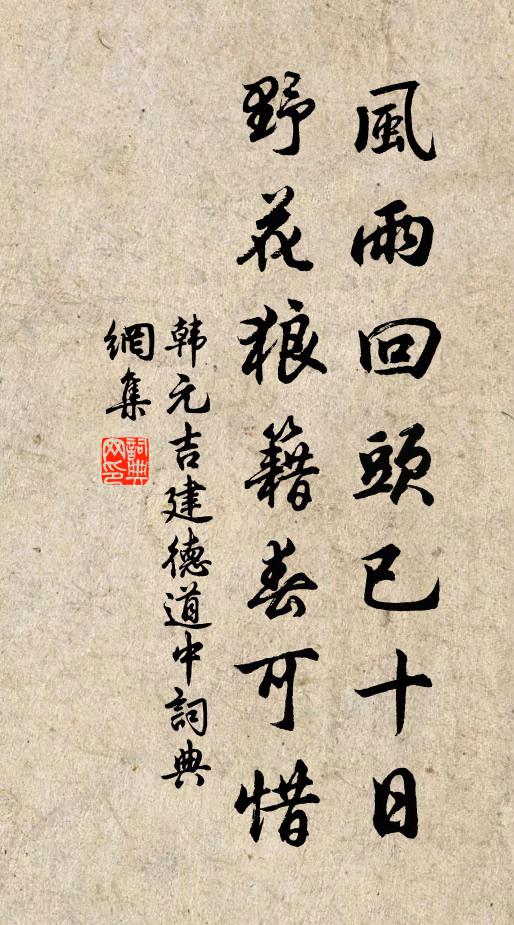 風雨回頭已十日
野花狼籍春可惜
韩元吉建德道中詞典
網集
詞典
网印